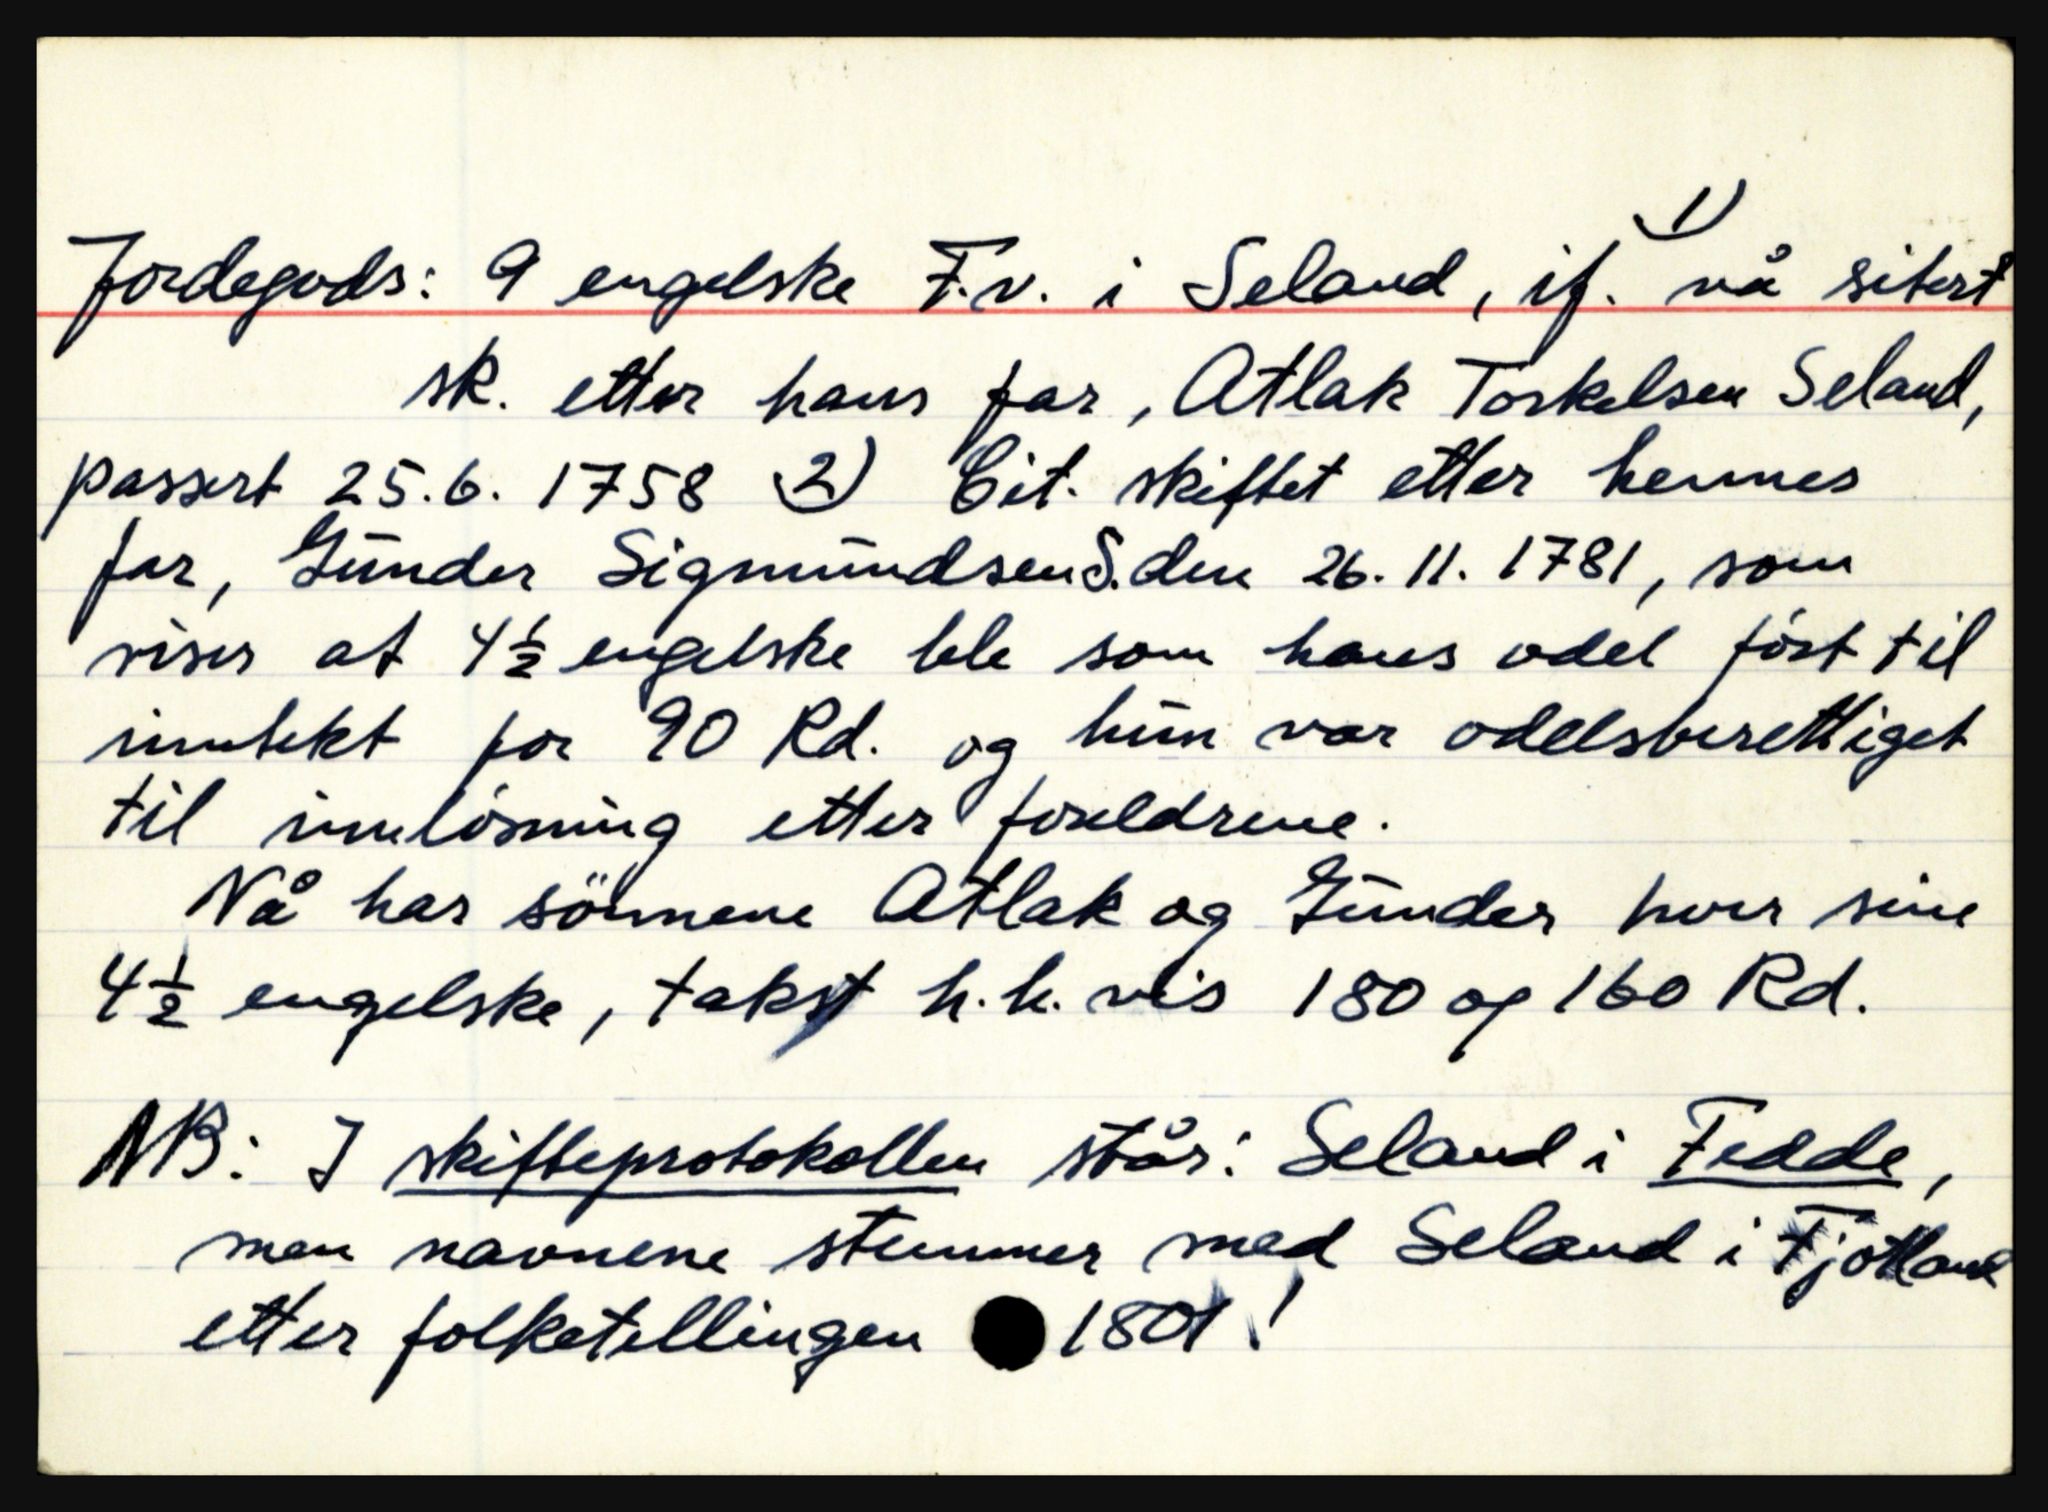 Jordegods: 9 engelske F.v. i Seland, if. 1) nå sitert
sk. etter hans far, Atlak Torkelsen Seland,
passert 25.6. 1758 2) Cit. skiftet etter hennes
far, Gunder Sigmundsen S. den 26. 11. 1781, som
viser at 4 1/2 engelske ble som hans odel fört til
inntekt for 90 Rd. og hun var odelsberettiget
til innlösning etter foreldrene.
Nå har sönnene Atlak og Gunder hver sine
4 1/2 engelske, takst h.h.vis 180 og 160 Rd.
NB: I skifteprotokollen står: Seland i Fedde,
men navnene stemmer med Seland i Fjotland
etter folketellingen 1801!